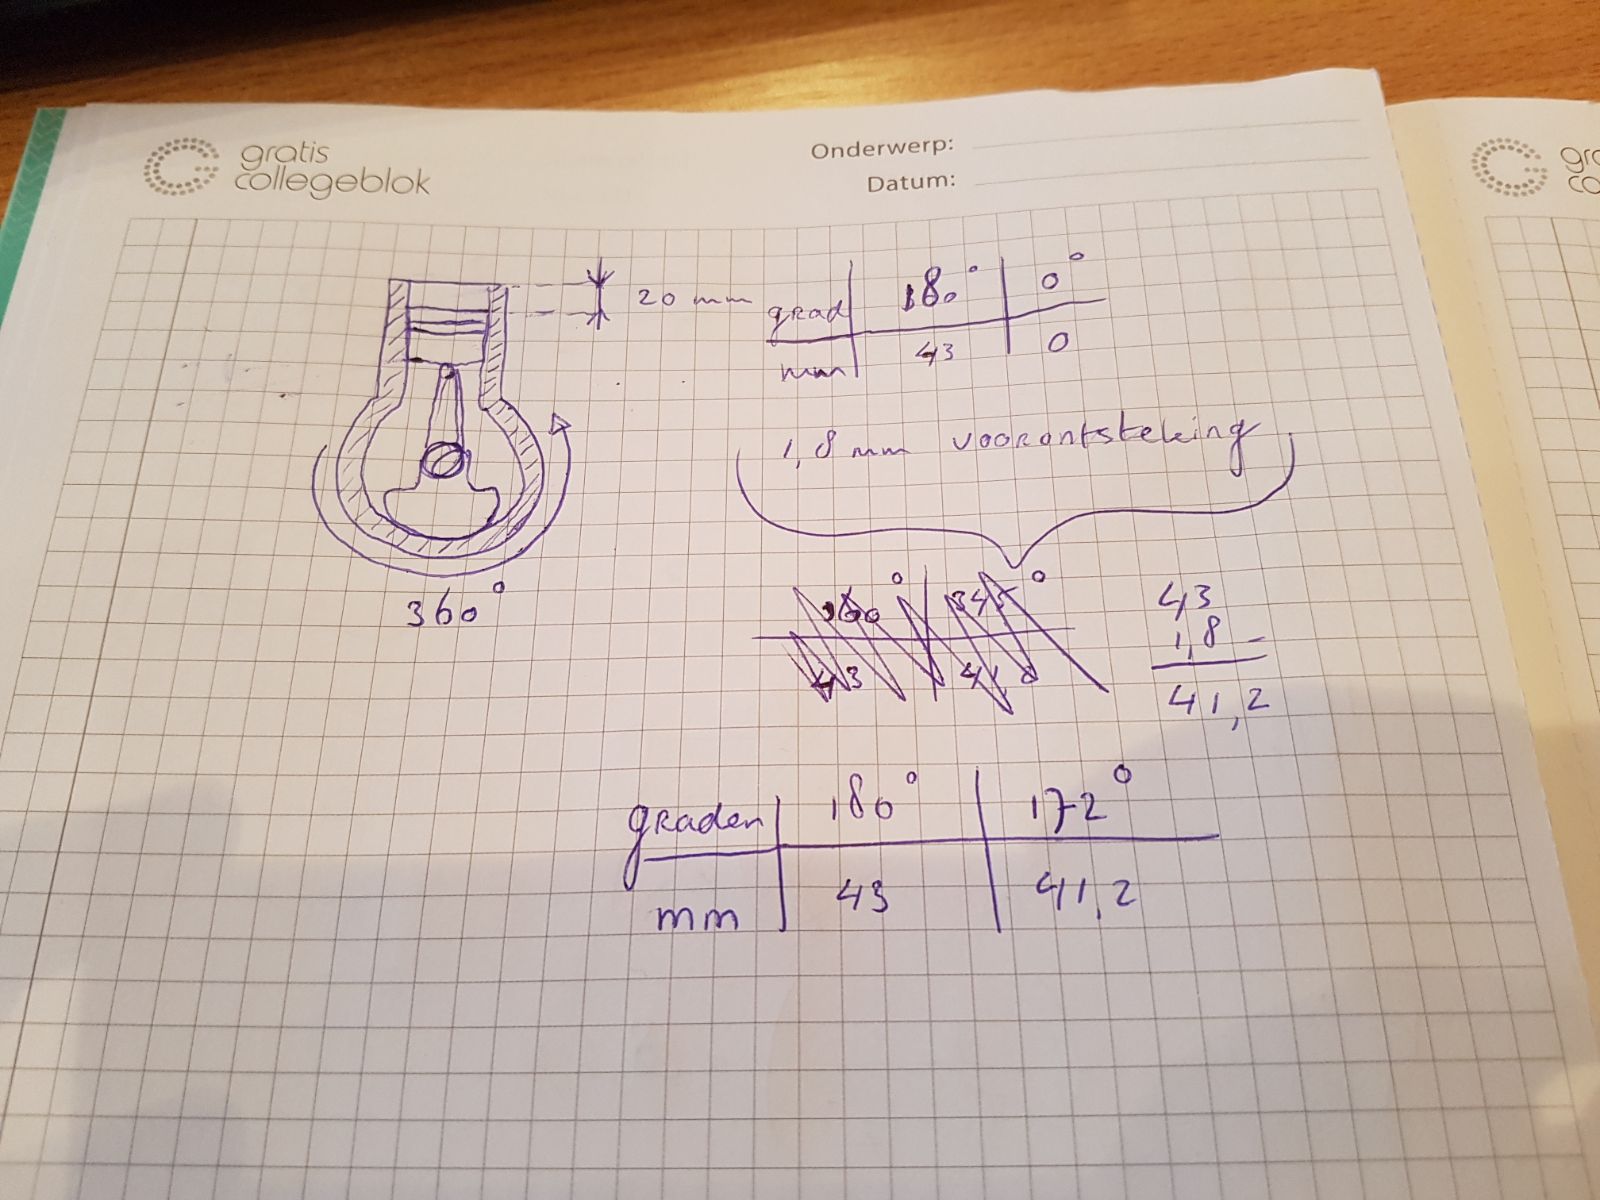 gratis
collegeblok
Onderwerp:
Datum:
gr
co
20 mm
grad 180° 0°
mm 43 0
1,8 mm voorontsteking
360°
43
1,8 –
41,2
graden 180° 172°
mm 43 41,2